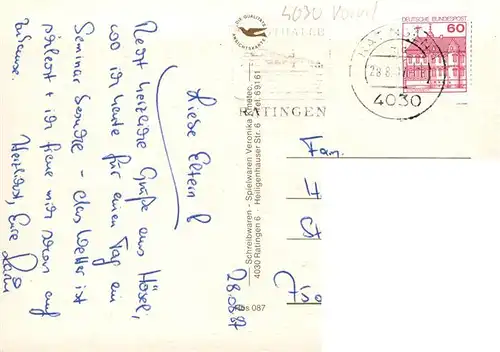 Liebe Eltern!
Recht herzliche Grüße aus Hösel,
wo ich heute für einen Tag ein
Seminar besuche - das Wetter ist
schlecht + ich freue mich schon auf
zuhause.
Herzlichst, Eure
28.08.87
DIE QUALITÄTS
ANSICHTSKARTE
Schreibwaren - Spielwaren Veronika
4030 Ratingen 6 - Heiligenhauser Str. 6 Tel. 69161
Bes 087
4030
RATINGEN
DEUTSCHE BUNDESPOST
60
28.8.
4030
Fam.